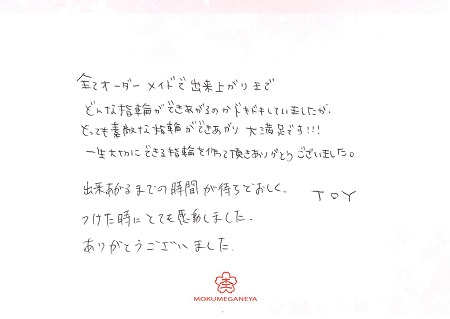 全てオーダーメイドで出来上がりまで
どんな指輪ができあがるのかドキドキしていましたが、
とっても素敵な指輪ができあがり大満足です!!!
一生大切にできる指輪を作って頂きありがとうございました。
出来あがるまでの時間が待ちどおしく、
TOY
つけた時にとても感動しました。
ありがとうございました。
MOKUMEGANEYA